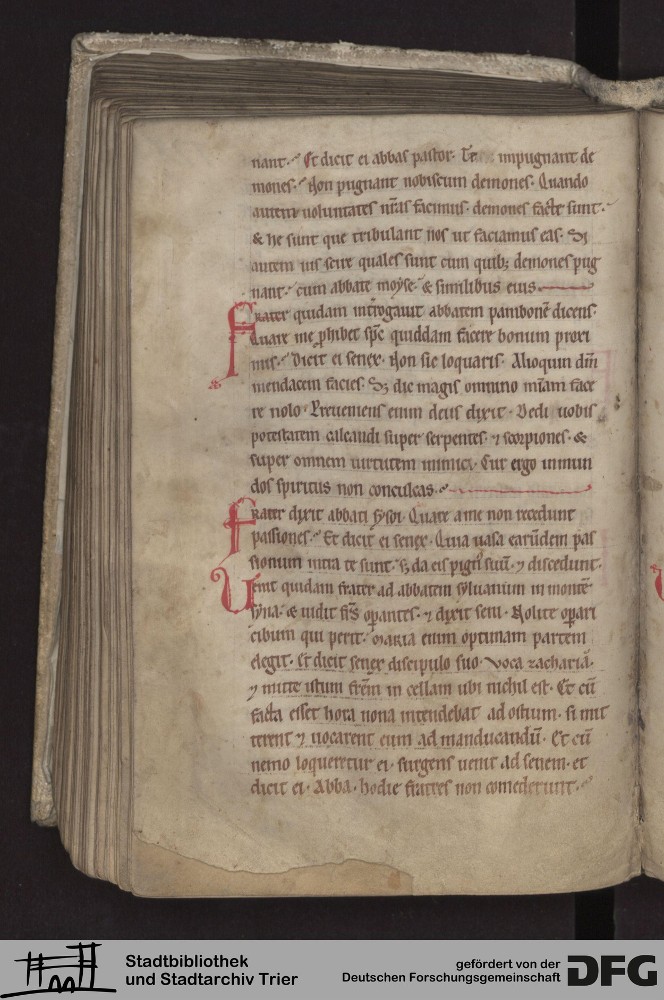 nant. Et dicit ei abbas pastor. Te impugnant de
mones. Non pugnant nobiscum demones. Quando
autem uoluntates nr̄as facimus. demones facte sunt.
& he sunt que tribulant nos ut faciamus eas. Si
autem uis scire quales sunt cum quib; demones pug
nant. cum abbate moyse. & similibus eius.
Frater quidam int̄rogauit abbatem pambonē dicens.
Quare me ꝓhibet sp̄c quiddam facere bonum proxi
mis. Dicit ei senex. Non sic loquaris. Alioquin dm̄
mendacem facies. Sȝ dic magis omnino mīam face
re nolo. Preueniens enim deus dixit. Dedi uobis
potestatem calcandi super serpentes. ⁊ scorpiones. &
super omnem uirtutem inimici. Cur ergo inmun
dos spiritus non conculcas.
Frater dixit abbati sysoi. Quare a me non recedunt
passiones. Et dicit ei senex. Quia uasa earūdem pas
sionum intra te sunt. sȝ da eis pign̄ suū. ⁊ discedunt.
Venit quidam frater ad abbatem syluanum in montē
syna. & uidit fr̄s oꝑantes. ⁊ dixit seni. Nolite oꝑari
cibum qui perit. maria enim optimam partem
elegit. Et dicit senex discipulo suo. Voca zachariā.
⁊ mitte istum frēm in cellam ubi nichil est. Et cū
facta esset hora nona intendebat ad ostium. si mit
terent ⁊ uocarent eum ad manducandū. Et cū
nemo loqueretur ei. surgens uenit ad senem. et
dicit ei. Abba. hodie fratres non comederunt.
Stadtbibliothek
und Stadtarchiv Trier
gefördert von der
Deutschen Forschungsgemeinschaft
DFG